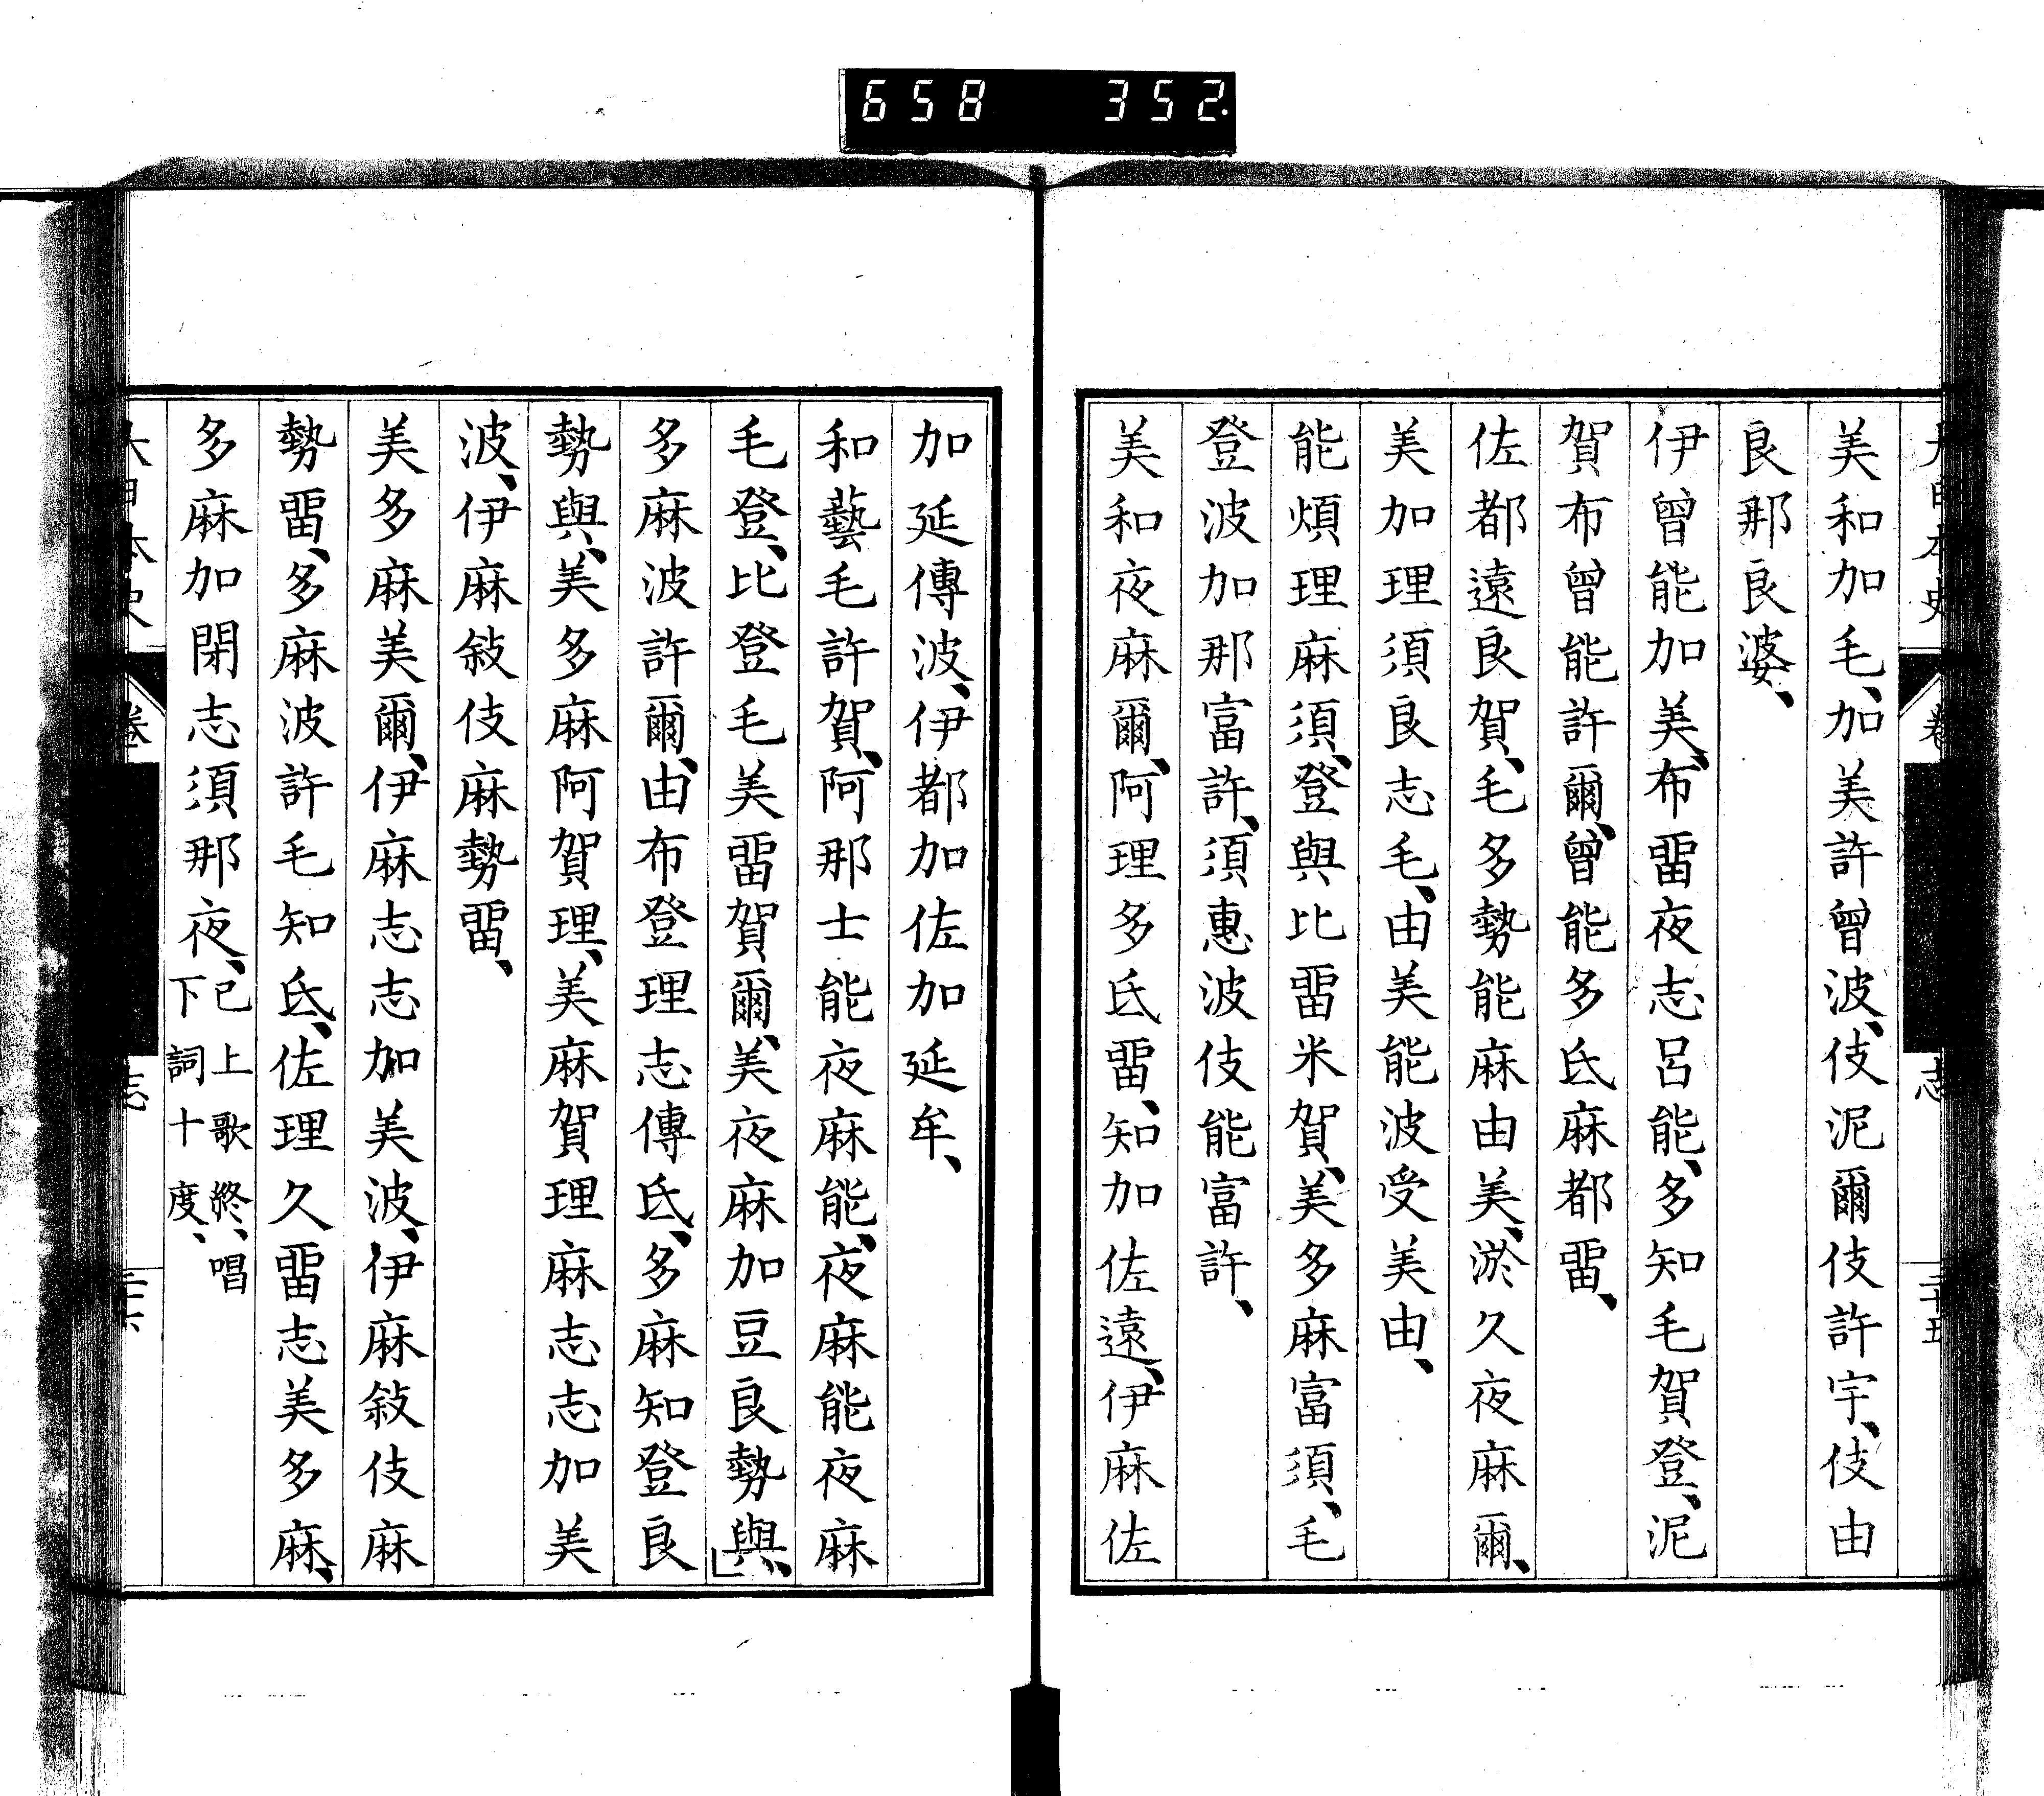 658 352.
美和加毛、加美許曾波、伎泥爾伎許宇、伎由
良那良婆、
伊曾能加美、布畱夜志呂能、多知毛賀登、泥
賀布曾能許爾、曾能多氐麻都畱、
佐都遠良賀、毛多勢能麻由美、淤久夜麻爾、
美加理須良志毛、由美能波受美由、
能煩理麻須、登與比畱米賀、美多麻富須、毛
登波加那富許、須惠波伎能富許、
美和夜麻爾、阿理多氐畱、知加佐遠、伊麻佐
加延傳波、伊都加佐加延牟、
和藝毛許賀、阿那士能夜麻能、夜麻能夜麻
毛登、比登毛美畱賀爾、美夜麻加豆良勢與、
多麻波許爾、由布登理志傳氐、多麻知登良
勢與、美多麻阿賀理、美麻賀理麻志志加美
波、伊麻敍伎麻勢畱、
美多麻美爾、伊麻志志加美波、伊麻敍伎麻
勢畱、多麻波許毛知氐、佐理久畱志美多麻、
多麻加閉志須那夜、已上歌終、唱
下詞十度、